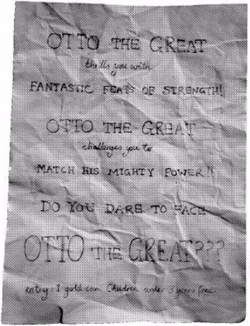 OTTO THE GREAT
thrills you with
FANTASTIC FEATS OF STRENGTH!!
OTTO THE GREAT
challenges you to
MATCH HIS MIGHTY POWER!!
DO YOU DARE TO FACE
OTTO THE GREAT???
entry: 1 gold coin. Children under 3 years free.